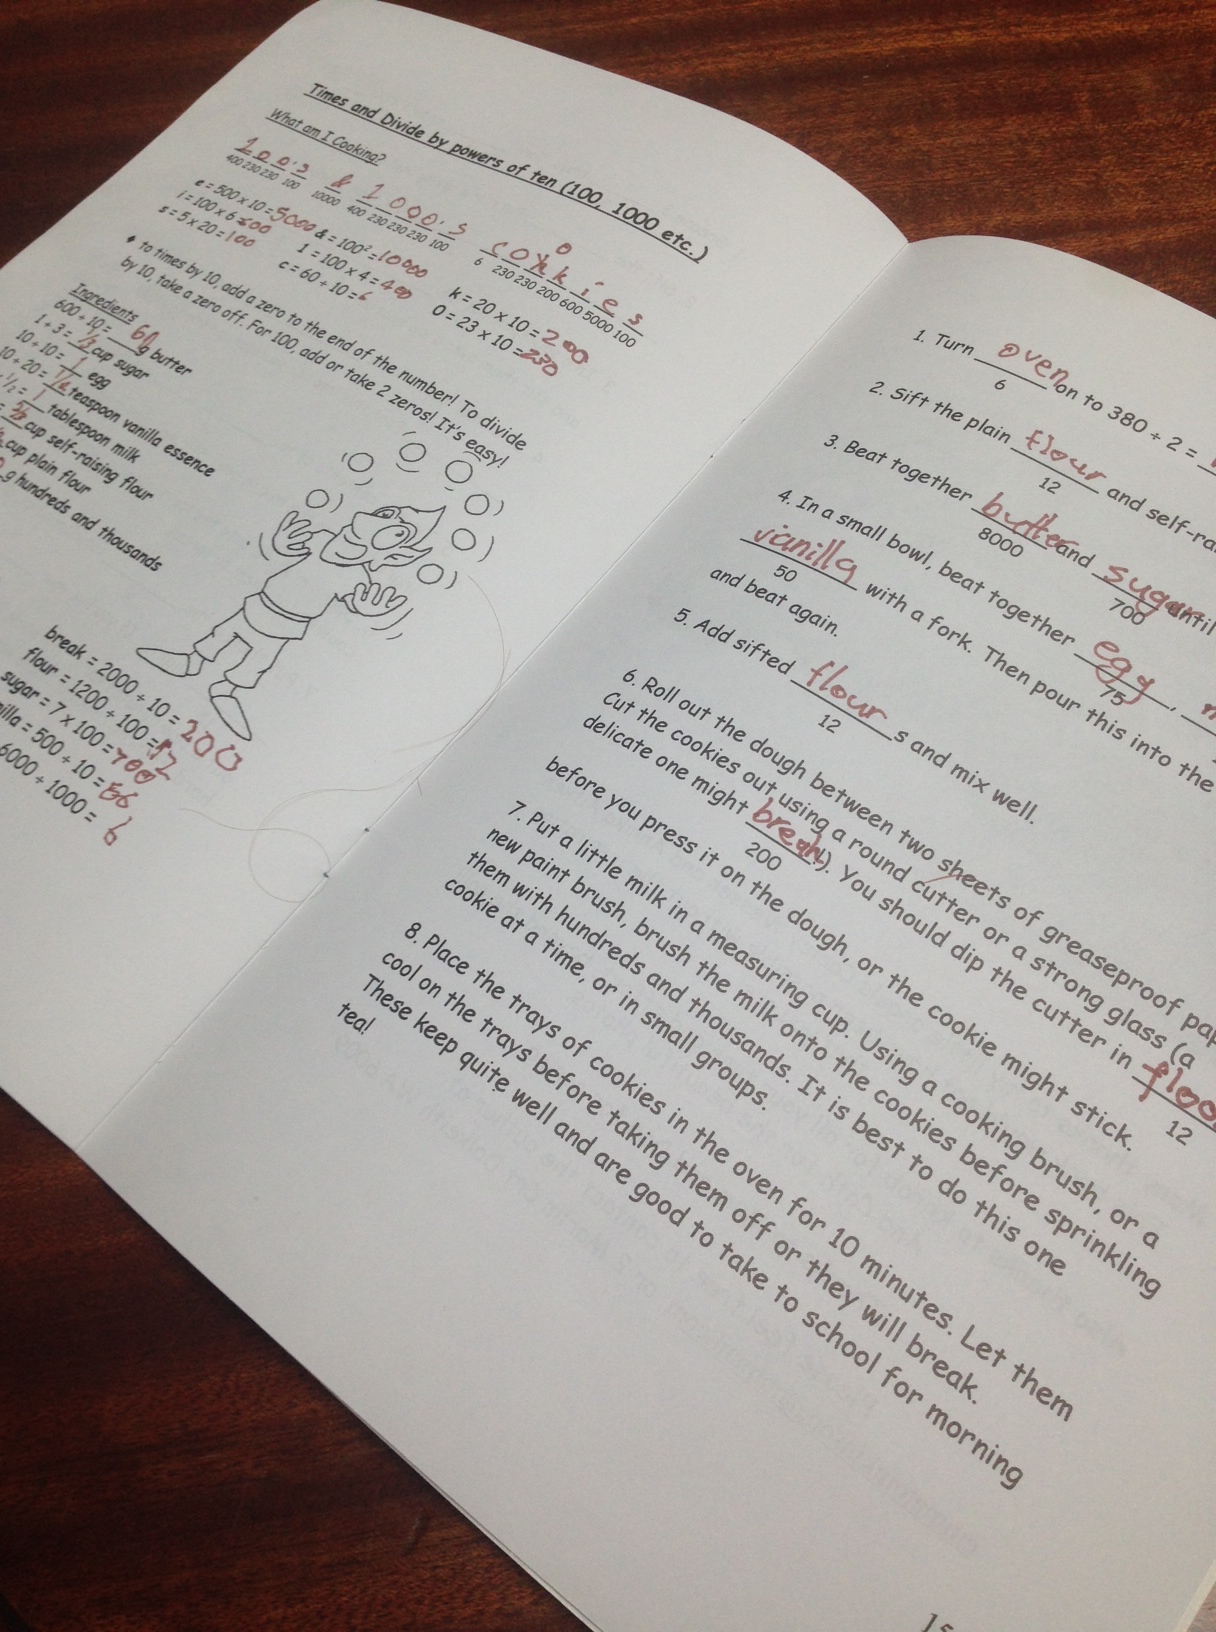 Times and Divide by powers of ten (100, 1000 etc.)
What am I Cooking?
100's & 1000's cookies
400 230 230 100 10000 400 230 230 230 100 6 230 230 200 600 5000 100
e = 500 x 10 = 5000 & = 100² = 10000 k = 20 x 10 = 200
i = 100 x 6 = 600 1 = 100 x 4 = 400 0 = 23 x 10 = 230
s = 5 x 20 = 100 c = 60 ÷ 10 = 6
♦ to times by 10, add a zero to the end of the number! To divide
by 10, take a zero off. For 100, add or take 2 zeros! It's easy!
Ingredients
600 ÷ 10 = 60 g butter
1 ÷ 3 = 1/3 cup sugar
10 ÷ 10 = 1 egg
10 ÷ 20 = teaspoon vanilla essence
½ = 1 tablespoon milk
= cup self-raising flour
cup plain flour
g hundreds and thousands
break = 2000 ÷ 10 = 200
flour = 1200 ÷ 100 = 12
sugar = 7 x 100 = 700
= 500 ÷ 10 =
6000 ÷ 1000 = 6
1. Turn oven on to 380 ÷ 2 =
6
2. Sift the plain flour and
12
3. Beat together butter and sugar until
8000 700
4. In a small bowl, beat together egg,
75
vanilla with a fork. Then pour this into the
50
and beat again.
5. Add sifted flour s and mix well.
12
6. Roll out the dough between two sheets of greaseproof
Cut the cookies out using a round cutter or a strong glass (a
delicate one might break!). You should dip the cutter in
200 12
before you press it on the dough, or the cookie might stick.
7. Put a little milk in a measuring cup. Using a cooking brush, or a
new paint brush, brush the milk onto the cookies before sprinkling
them with hundreds and thousands. It is best to do this one
cookie at a time, or in small groups.
8. Place the trays of cookies in the oven for 10 minutes. Let them
cool on the trays before taking them off or they will break.
These keep quite well and are good to take to school for morning
tea!